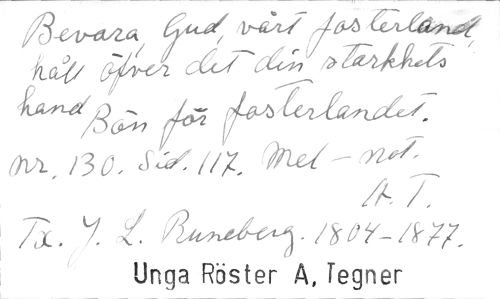 Bevara, Gud, vårt fosterland,
håll öfver det din starkhets
hand Bön för fosterlandet.
nr. 130. Sid. 117. Mel-not.
A. T.
Tx. J. L. Runeberg. 1804-1877.
Unga Röster A, Tegner